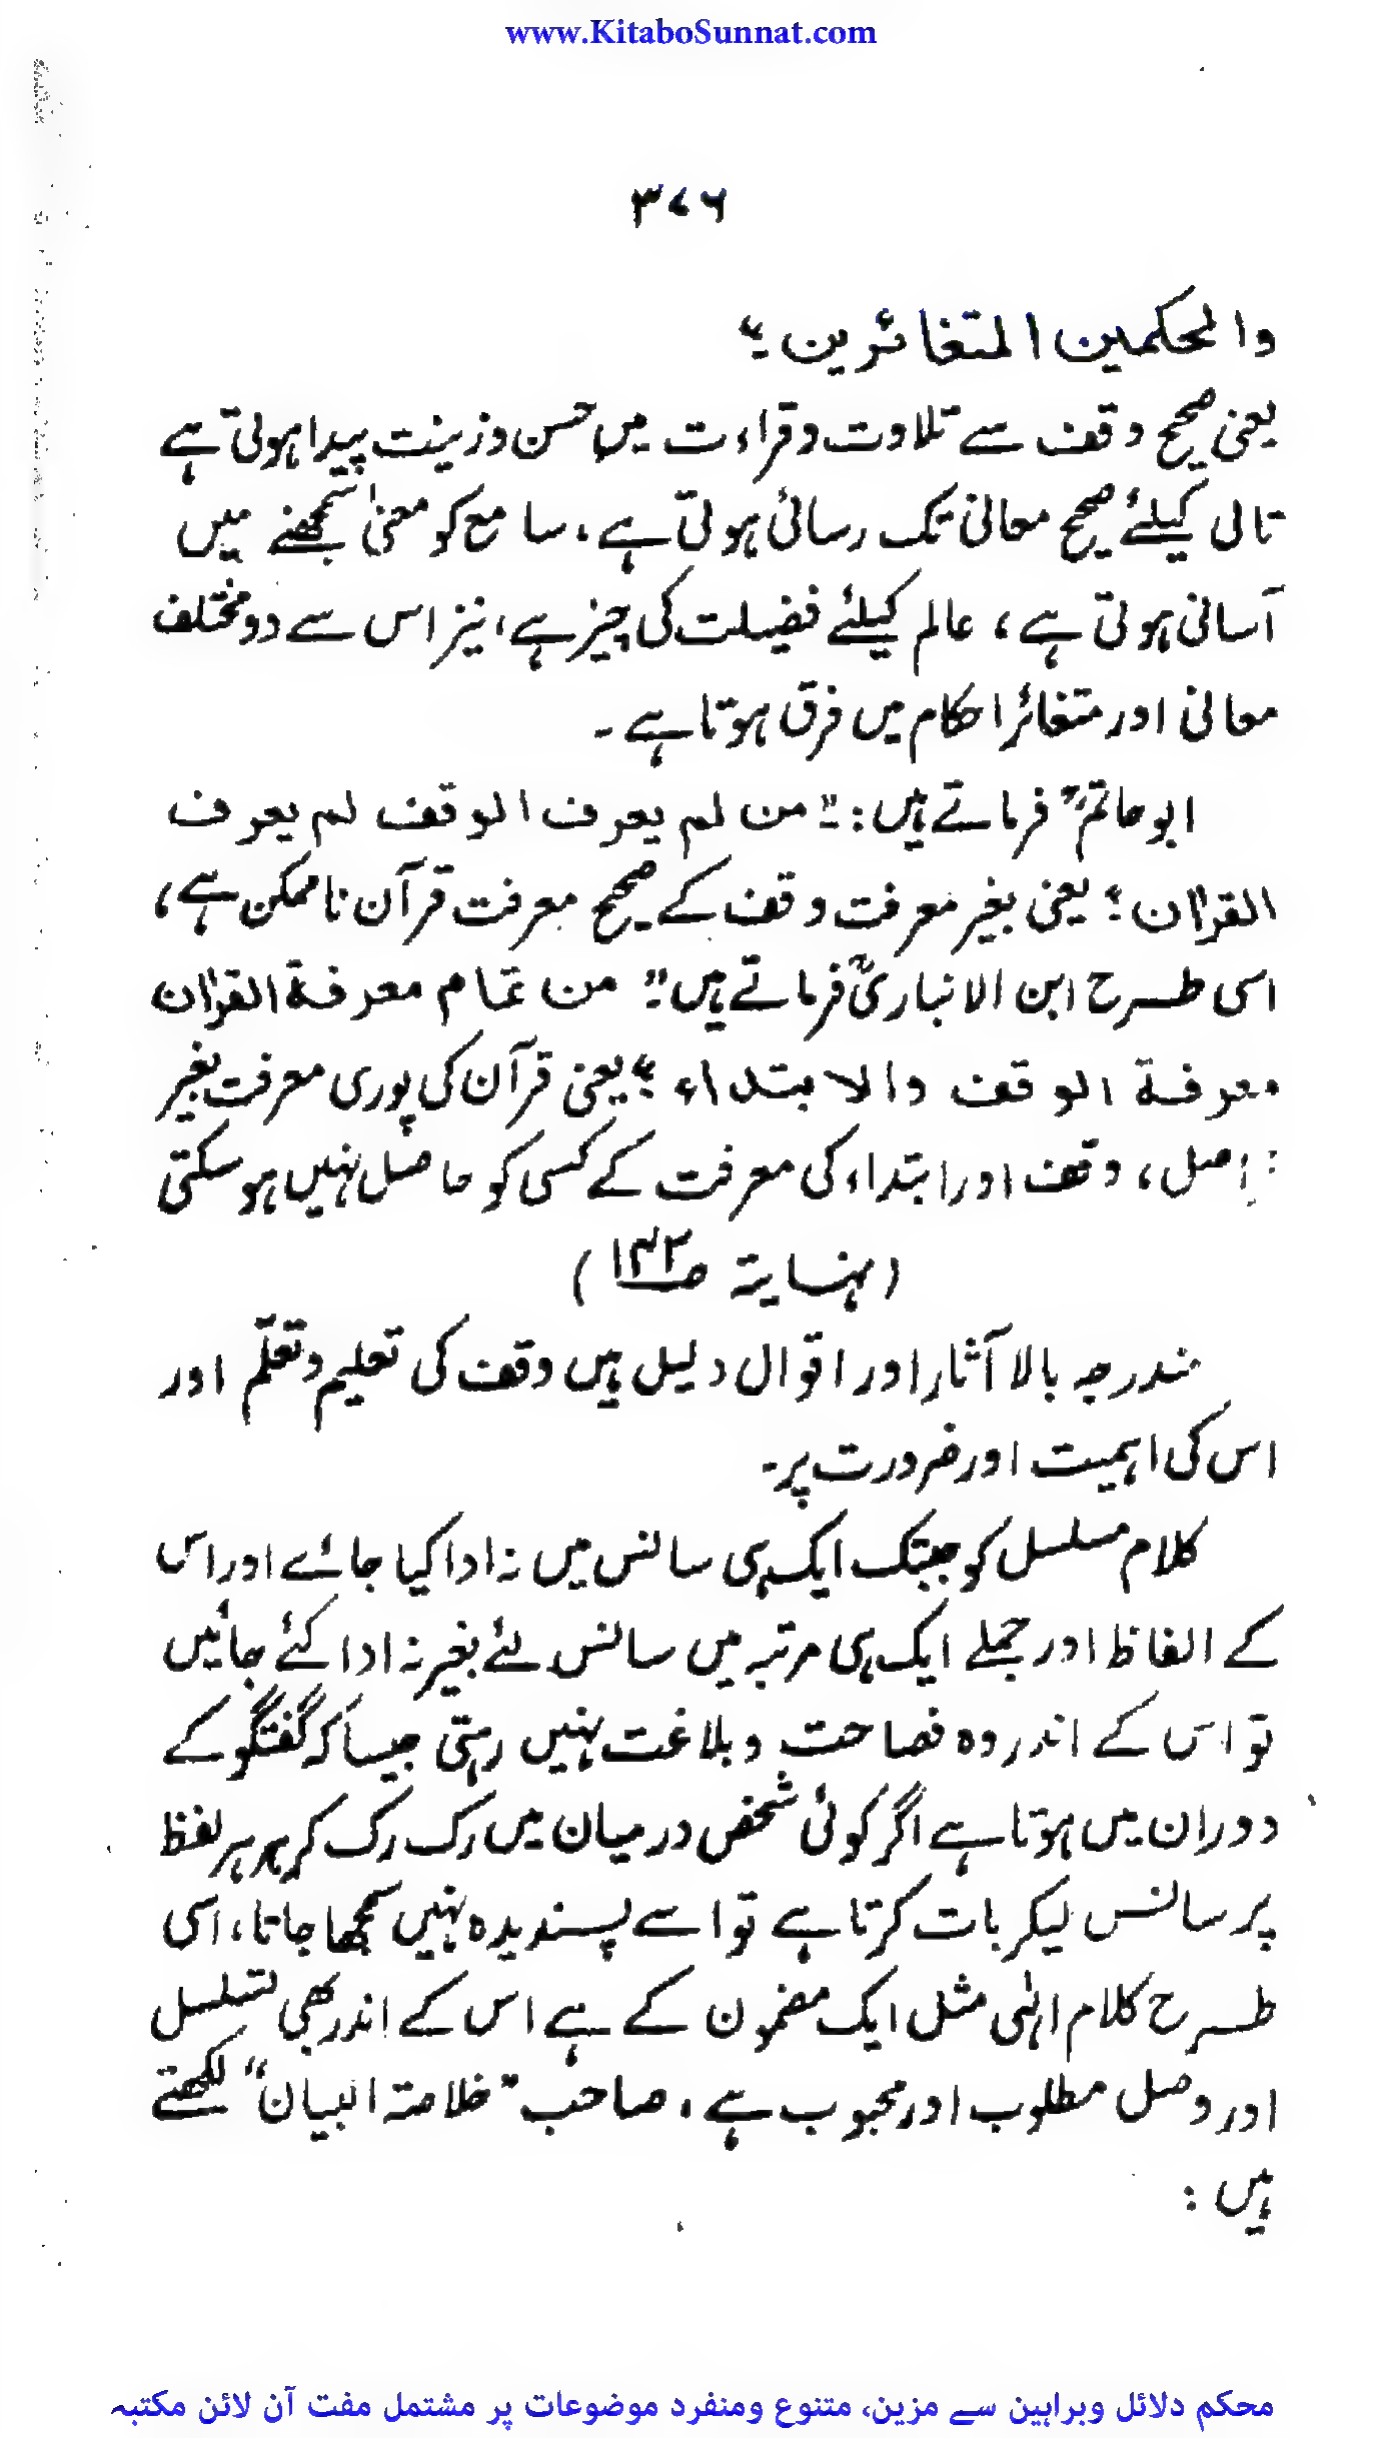 www.KitaboSunnat.com
۳۷۶
والحکمین المتغائرین ؛"
یعنی صحیح وقف سے تلاوت وقراءت میں حسن وزینت پیدا ہوتی ہے
تالی کیلئے صحیح معانی تک رسائی ہوتی ہے، سامع کو معنیٰ سمجھنے میں
آسانی ہوتی ہے، عالم کیلئے فضیلت کی چیز ہے، نیز اس سے دو مختلف
معانی اور متغائر احکام میں فرق ہوتا ہے۔
ابوحاتمؒ فرماتے ہیں: "من لم یعرف الوقف لم یعرف
القراٰن ؛ یعنی بغیر معرفت وقف کے صحیح معرفت قرآن ناممکن ہے،
اسی طرح ابن الانباریؒ فرماتے ہیں" من تمام معرفۃ القراٰن
معرفۃ الوقف والابتداء ؛" یعنی قرآن کی پوری معرفت بغیر
اصل، وقف اور ابتداء کی معرفت کے کسی کو حاصل نہیں ہوسکتی
(نہایۃ ص۱۳۲)
مندرجہ بالا آثار اور اقوال دلیل ہیں وقف کی تعلیم وتعلّم اور
اس کی اہمیت اور ضرورت پر۔
کلام مسلسل کو جبتک ایک ہی سانس میں نہ ادا کیا جائے اور اس
کے الفاظ اور جملے ایک ہی مرتبہ میں سانس لئے بغیر نہ ادا کئے جائیں
تو اس کے اندر وہ فصاحت وبلاغت نہیں رہتی جیسا کہ گفتگو کے
دوران میں ہوتا ہے اگر کوئی شخص درمیان میں رک رک کر ہر ہر لفظ
پر سانس لیکر بات کرتا ہے تو اسے پسندیدہ نہیں سمجھا جاتا، اسی
طرح کلام الٰہی مثل ایک مضمون کے ہے اس کے اندر بھی تسلسل
اور وصل مطلوب اور محبوب ہے، صاحب "خلاصۃ البیان" لکھتے
ہیں :
محکم دلائل وبراہین سے مزین، متنوع ومنفرد موضوعات پر مشتمل مفت آن لائن مکتبہ